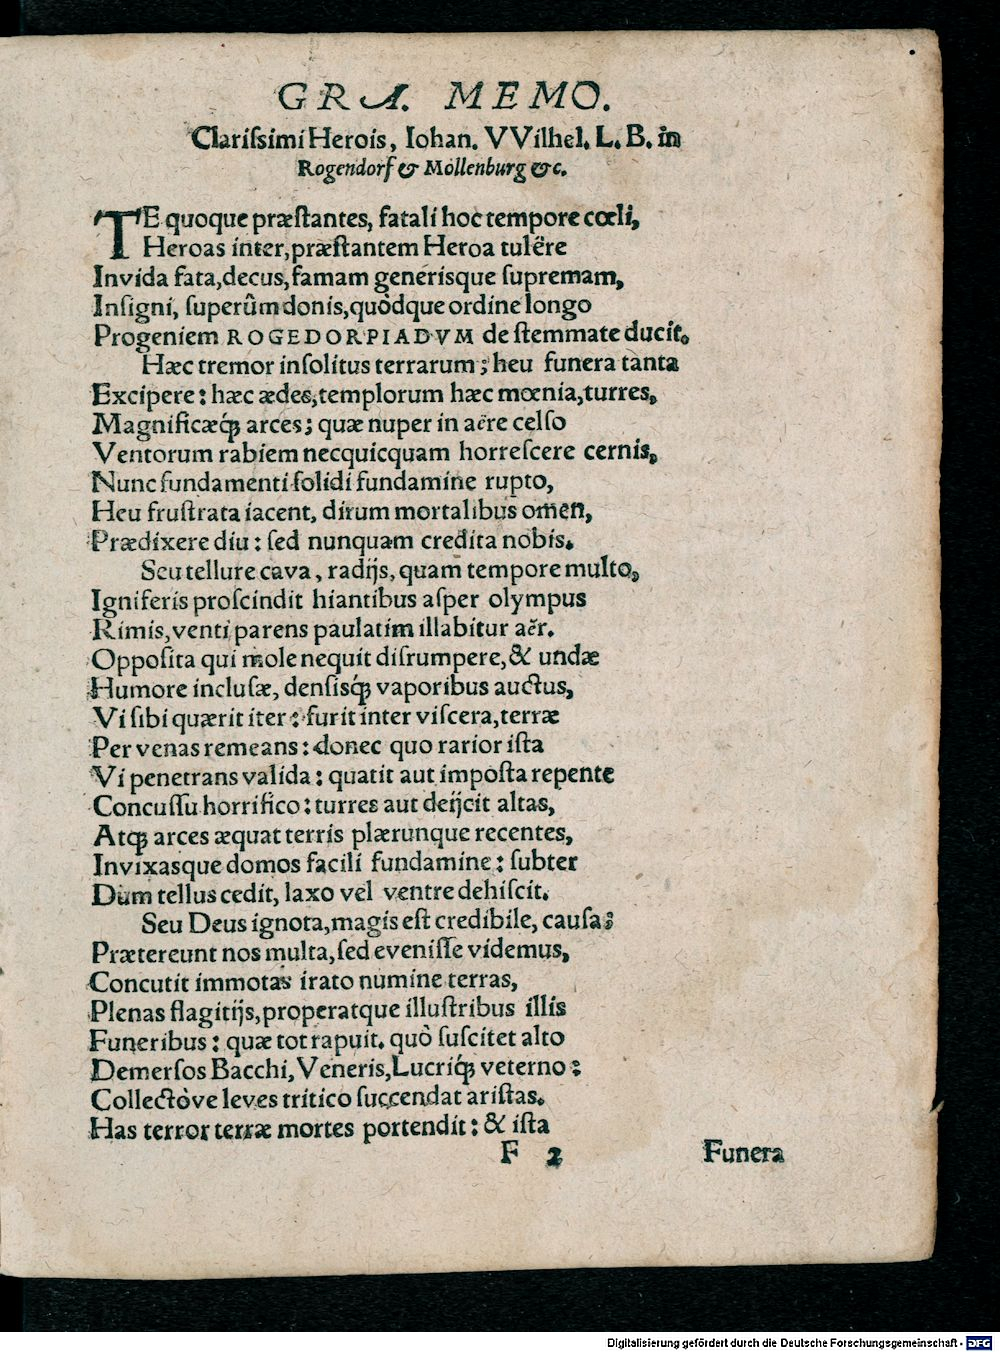 GRA. MEMO.
Clariſsimi Herois, Iohan. VVilhel. L. B. in
Rogendorf & Mollenburg &c.
TE quoque præſtantes, fatali hoc tempore cœli,
Heroas inter, præſtantem Heroa tulêre
Invida fata, decus, famam generisque ſupremam,
Inſigni, ſuperûm donis, quòdque ordine longo
Progeniem ROGEDORPIADVM de ſtemmate ducit.
Hæc tremor inſolitus terrarum; heu funera tanta
Excipere: hæc ædes, templorum hæc mœnia, turres,
Magnificæq́; arces; quæ nuper in aëre celſo
Ventorum rabiem necquicquam horreſcere cernis,
Nunc fundamenti ſolidi fundamine rupto,
Heu fruſtrata iacent, dirum mortalibus omen,
Prædixere diu: ſed nunquam credita nobis.
Seu tellure cava, radijs, quam tempore multo,
Igniferis proſcindit hiantibus aſper olympus
Rimis, venti parens paulatim illabitur aër.
Oppoſita qui mole nequit diſrumpere, & undæ
Humore incluſæ, denſisq́; vaporibus auctus,
Vi ſibi quærit iter: furit inter viſcera, terræ
Per venas remeans: donec quo rarior iſta
Vi penetrans valida: quatit aut impoſta repente
Concuſſu horrifico: turres aut deijcit altas,
Atq; arces æquat terris plærunque recentes,
Invixasque domos facili fundamine: ſubter
Dum tellus cedit, laxo vel ventre dehiſcit.
Seu Deus ignota, magis eſt credibile, cauſa;
Prætereunt nos multa, ſed eveniſſe videmus,
Concutit immotas irato numine terras,
Plenas flagitijs, properatque illuſtribus illis
Funeribus: quæ tot rapuit. quò ſuſcitet alto
Demerſos Bacchi, Veneris, Lucriq́; veterno:
Collectòve leves tritico ſuccendat ariſtas.
Has terror terræ mortes portendit: & iſta
F 2 Funera
Digitalisierung gefördert durch die Deutsche Forschungsgemeinschaft - DFG